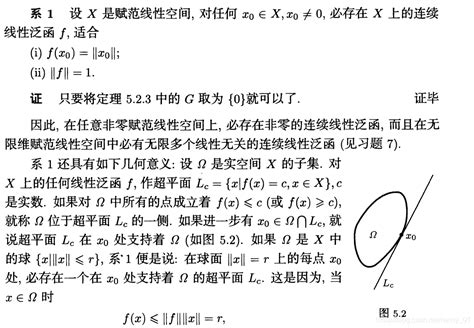 系 1 设 X 是赋范线性空间, 对任何 x₀ ∈ X, x₀ ≠ 0, 必存在 X 上的连续
线性泛函 f, 适合
(i) f(x₀) = ‖x₀‖;
(ii) ‖f‖ = 1.
证 只要将定理 5.2.3 中的 G 取为 {0}就可以了. 证毕
因此, 在任意非零赋范线性空间上, 必存在非零的连续线性泛函, 而且在无
限维赋范线性空间中必有无限多个线性无关的连续线性泛函 (见习题 7).
系 1 还具有如下几何意义: 设 Ω 是实空间 X 的子集. 对
X 上的任何线性泛函 f, 作超平面 L_c = {x|f(x) = c, x ∈ X}, c
是实数. 如果对 Ω 中所有的点成立着 f(x) ⩽ c (或 f(x) ⩾ c),
就称 Ω 位于超平面 L_c 的一侧. 如果进一步有 x₀ ∈ Ω ⋂ L_c, 就
说超平面 L_c 在 x₀ 处支持着 Ω (如图 5.2). 如果 Ω 是 X 中
的球 {x|‖x‖ ⩽ r}, 系 1 便是说: 在球面 ‖x‖ = r 上的每点 x₀
处, 必存在一个在 x₀ 处支持着 Ω 的超平面 L_c. 这是因为, 当
x ∈ Ω 时
f(x) ⩽ ‖f‖‖x‖ = r,
Ω
x₀
L_c
图 5.2